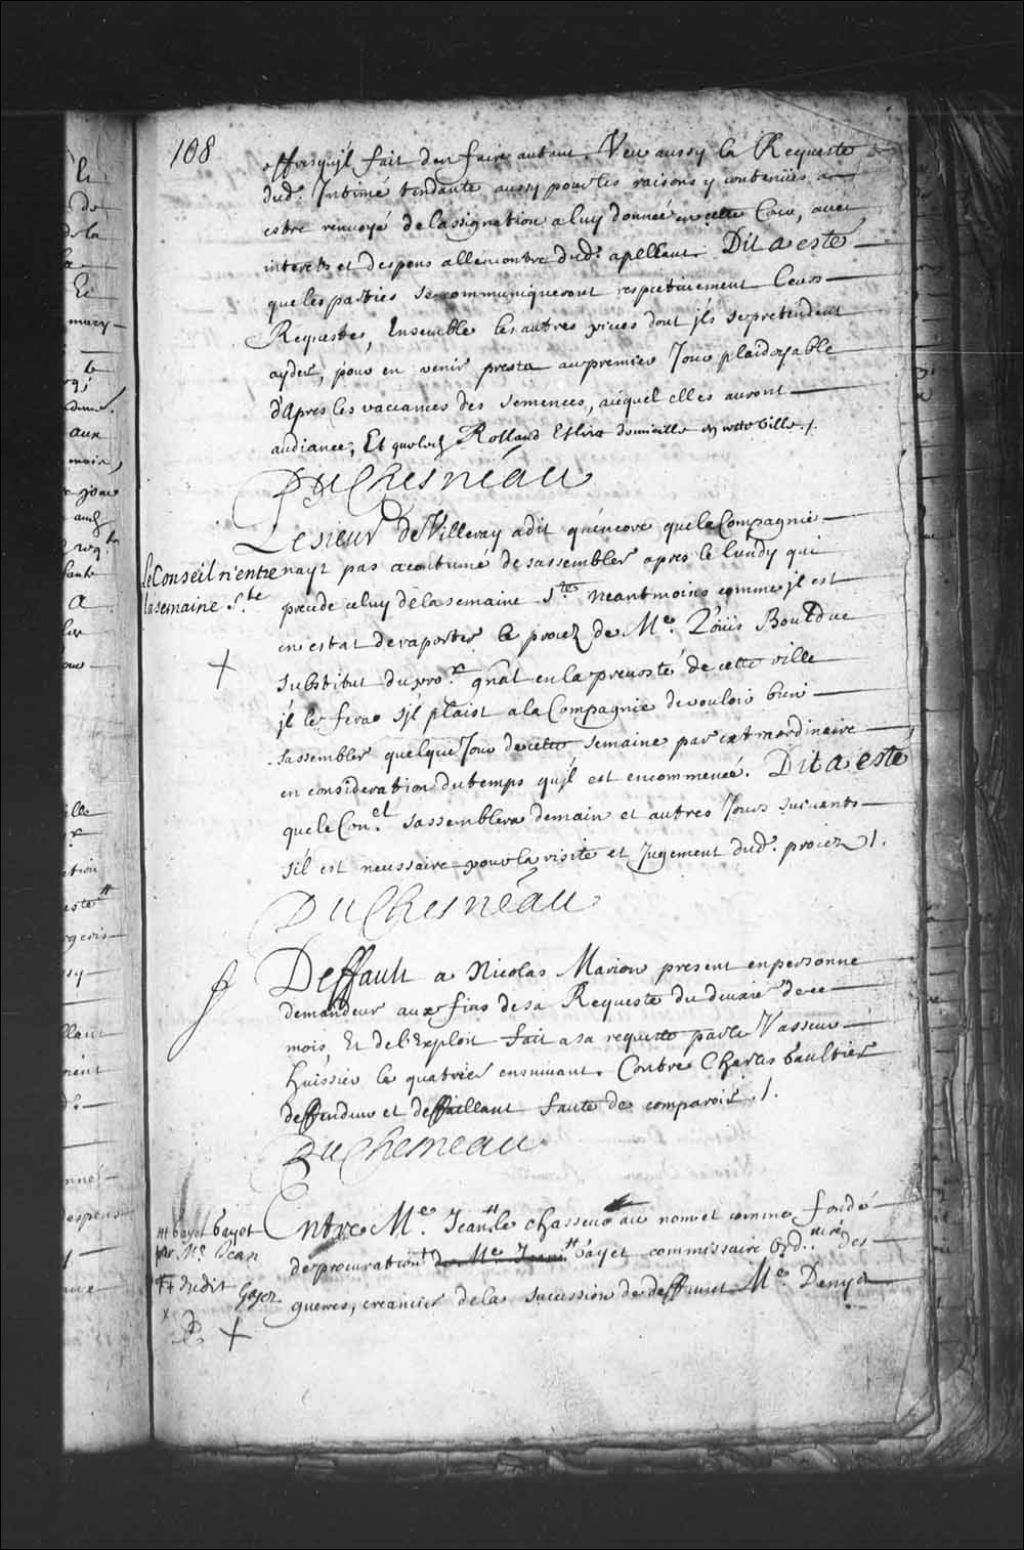 108
offres qu'jl fait d'en faire autant. Veu aussy la Requeste
dud. Intimé tendante aussy pour les raisons y contenües a
estre renvoyé de lassignation a luy donnée en cette Cour, avec
interests et despens allencontre dud. apellant. Dit a esté
que les parties se communiqueront respectivement leurs
Requestes, Ensemble les autres pieces dont jls se pretendent
ayder, pour en venir prests au premier Jour plaidoyable
d'Apres les vaccances des semences, auquel elles auront
audiance, Et que led. Rolland Eslira domicille en cette Ville ./.
DuChesneau
Le sieur de Villeray a dit qu'encore que la Compagnie
Le Conseil n'entre
la semaine Ste
nayt pas acoutumé de sassembler apres le lundy qui
precede celuy de la semaine Ste neantmoins comme jl est
en estat de raporter le procez de Me. Loüis Boulduc
substitut du pro.r gnâl en la prevosté de cette ville
jl le fera s'jl plaist a la Compagnie de vouloir bien
sassembler quelque Jour de cette semaine par extraordinaire
en consideration du temps qu'jl est encommencé. Dit a esté
que le Con.el sassemblera demain et autres Jours suivants
s'il est necessaire pour la visite et Jugement dud. procez ./.
DuChesneau
Deffault a Nicolas Marion present en personne
demandeur aux fins de sa Requeste du de ce
mois, Et de l'Exploit fait a sa requeste par le Vasseur
huissier le quatrie ensuivant. Contre Charles Gaultier
deffendeur et deffaillant faute de comparoir ./.
DuChesneau
Entre Me. Jean le chasseur au nom et comme fondé
de procuration de Me Jean Gayet commissaire Ord.re des
guerres, creancier de la succession de deffunct Me Denys
bayot bayot
par Me. Jean
dudit Gayet